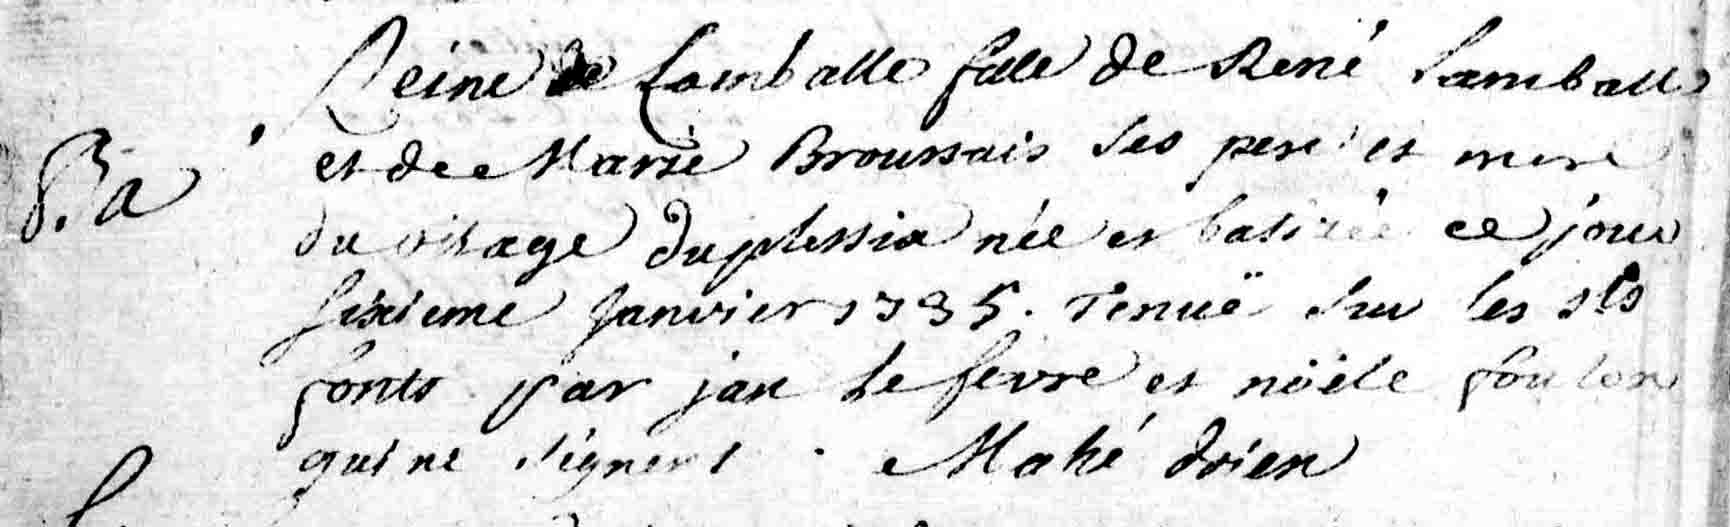 Reine de Lamballe fille de René Lamballe
et de Marie Broussais ses pere et mere
B. a
du vilage duplessix née et batisée ce jour
sixieme janvier 1735. Tenuë sur les sts
fonts par jan le fevre et nöéle foulon
qui ne signent . Mahé